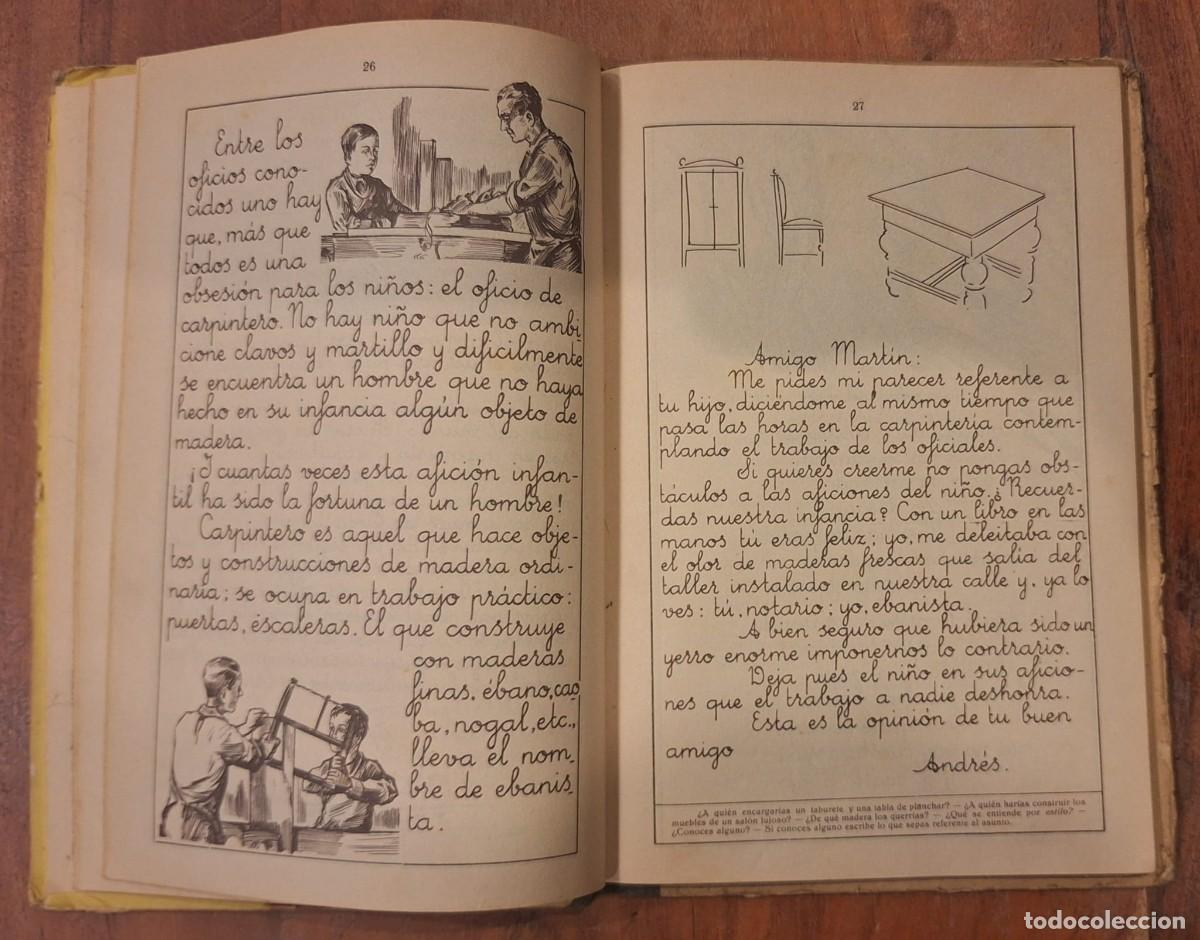 26
Entre los
oficios cono-
cidos uno hay
que, más que
todos es una
obsesión para los niños: el oficio de
carpintero. No hay niño que no ambi-
cione clavos y martillo y dificilmente
se encuentra un hombre que no haya
hecho en su infancia algún objeto de
madera.
¡Y cuantas veces esta afición infan-
til ha sido la fortuna de un hombre!
Carpintero es aquel que hace obje-
tos y construcciones de madera ordi-
naria; se ocupa en trabajo práctico:
puertas, escaleras. El que construye
con maderas
finas, ébano, cao-
ba, nogal, etc.,
lleva el nom-
bre de ebanis-
ta.
27
Amigo Martín:
Me pides mi parecer referente a
tu hijo, diciéndome al mismo tiempo que
pasa las horas en la carpintería contem-
plando el trabajo de los oficiales.
Si quieres creerme no pongas obs-
táculos a las aficiones del niño. ¿Recuer-
das nuestra infancia? Con un libro en las
manos tú eras feliz; yo, me deleitaba con
el olor de maderas frescas que salía del
taller instalado en nuestra calle y, ya lo
ves: tú, notario; yo, ebanista.
A bien seguro que hubiera sido un
yerro enorme imponernos lo contrario.
Deja pues el niño en sus aficio-
nes que el trabajo a nadie deshonra.
Esta es la opinión de tu buen
amigo
Andrés.
¿A quién encargarías un taburete y una tabla de planchar? — ¿A quién harías construir los
muebles de un salón lujoso? — ¿De qué madera los querrías? — ¿Qué se entiende por estilo? —
¿Conoces alguno? — Si conoces alguno escribe lo que sepas referente al asunto.
todocoleccion